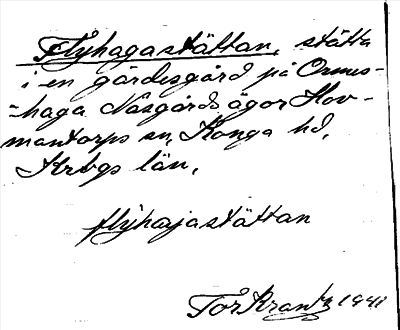 Flyhagastättan, stätta
i en gärdesgård på Ormes-
-haga Näsgårds ägor Hov-
mantorps sn, Konga hd,
Krbgs län,
flyhajastättan
Tor Krantz 1941